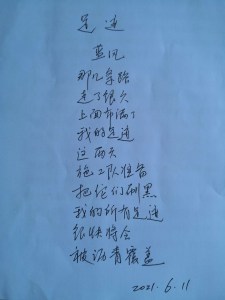 足迹
蓝风
那几条路
走了很久
上面布满了
我的足迹
这两天
施工队准备
把它们刷黑
我的所有足迹
很快将会
被沥青覆盖
2021.6.11